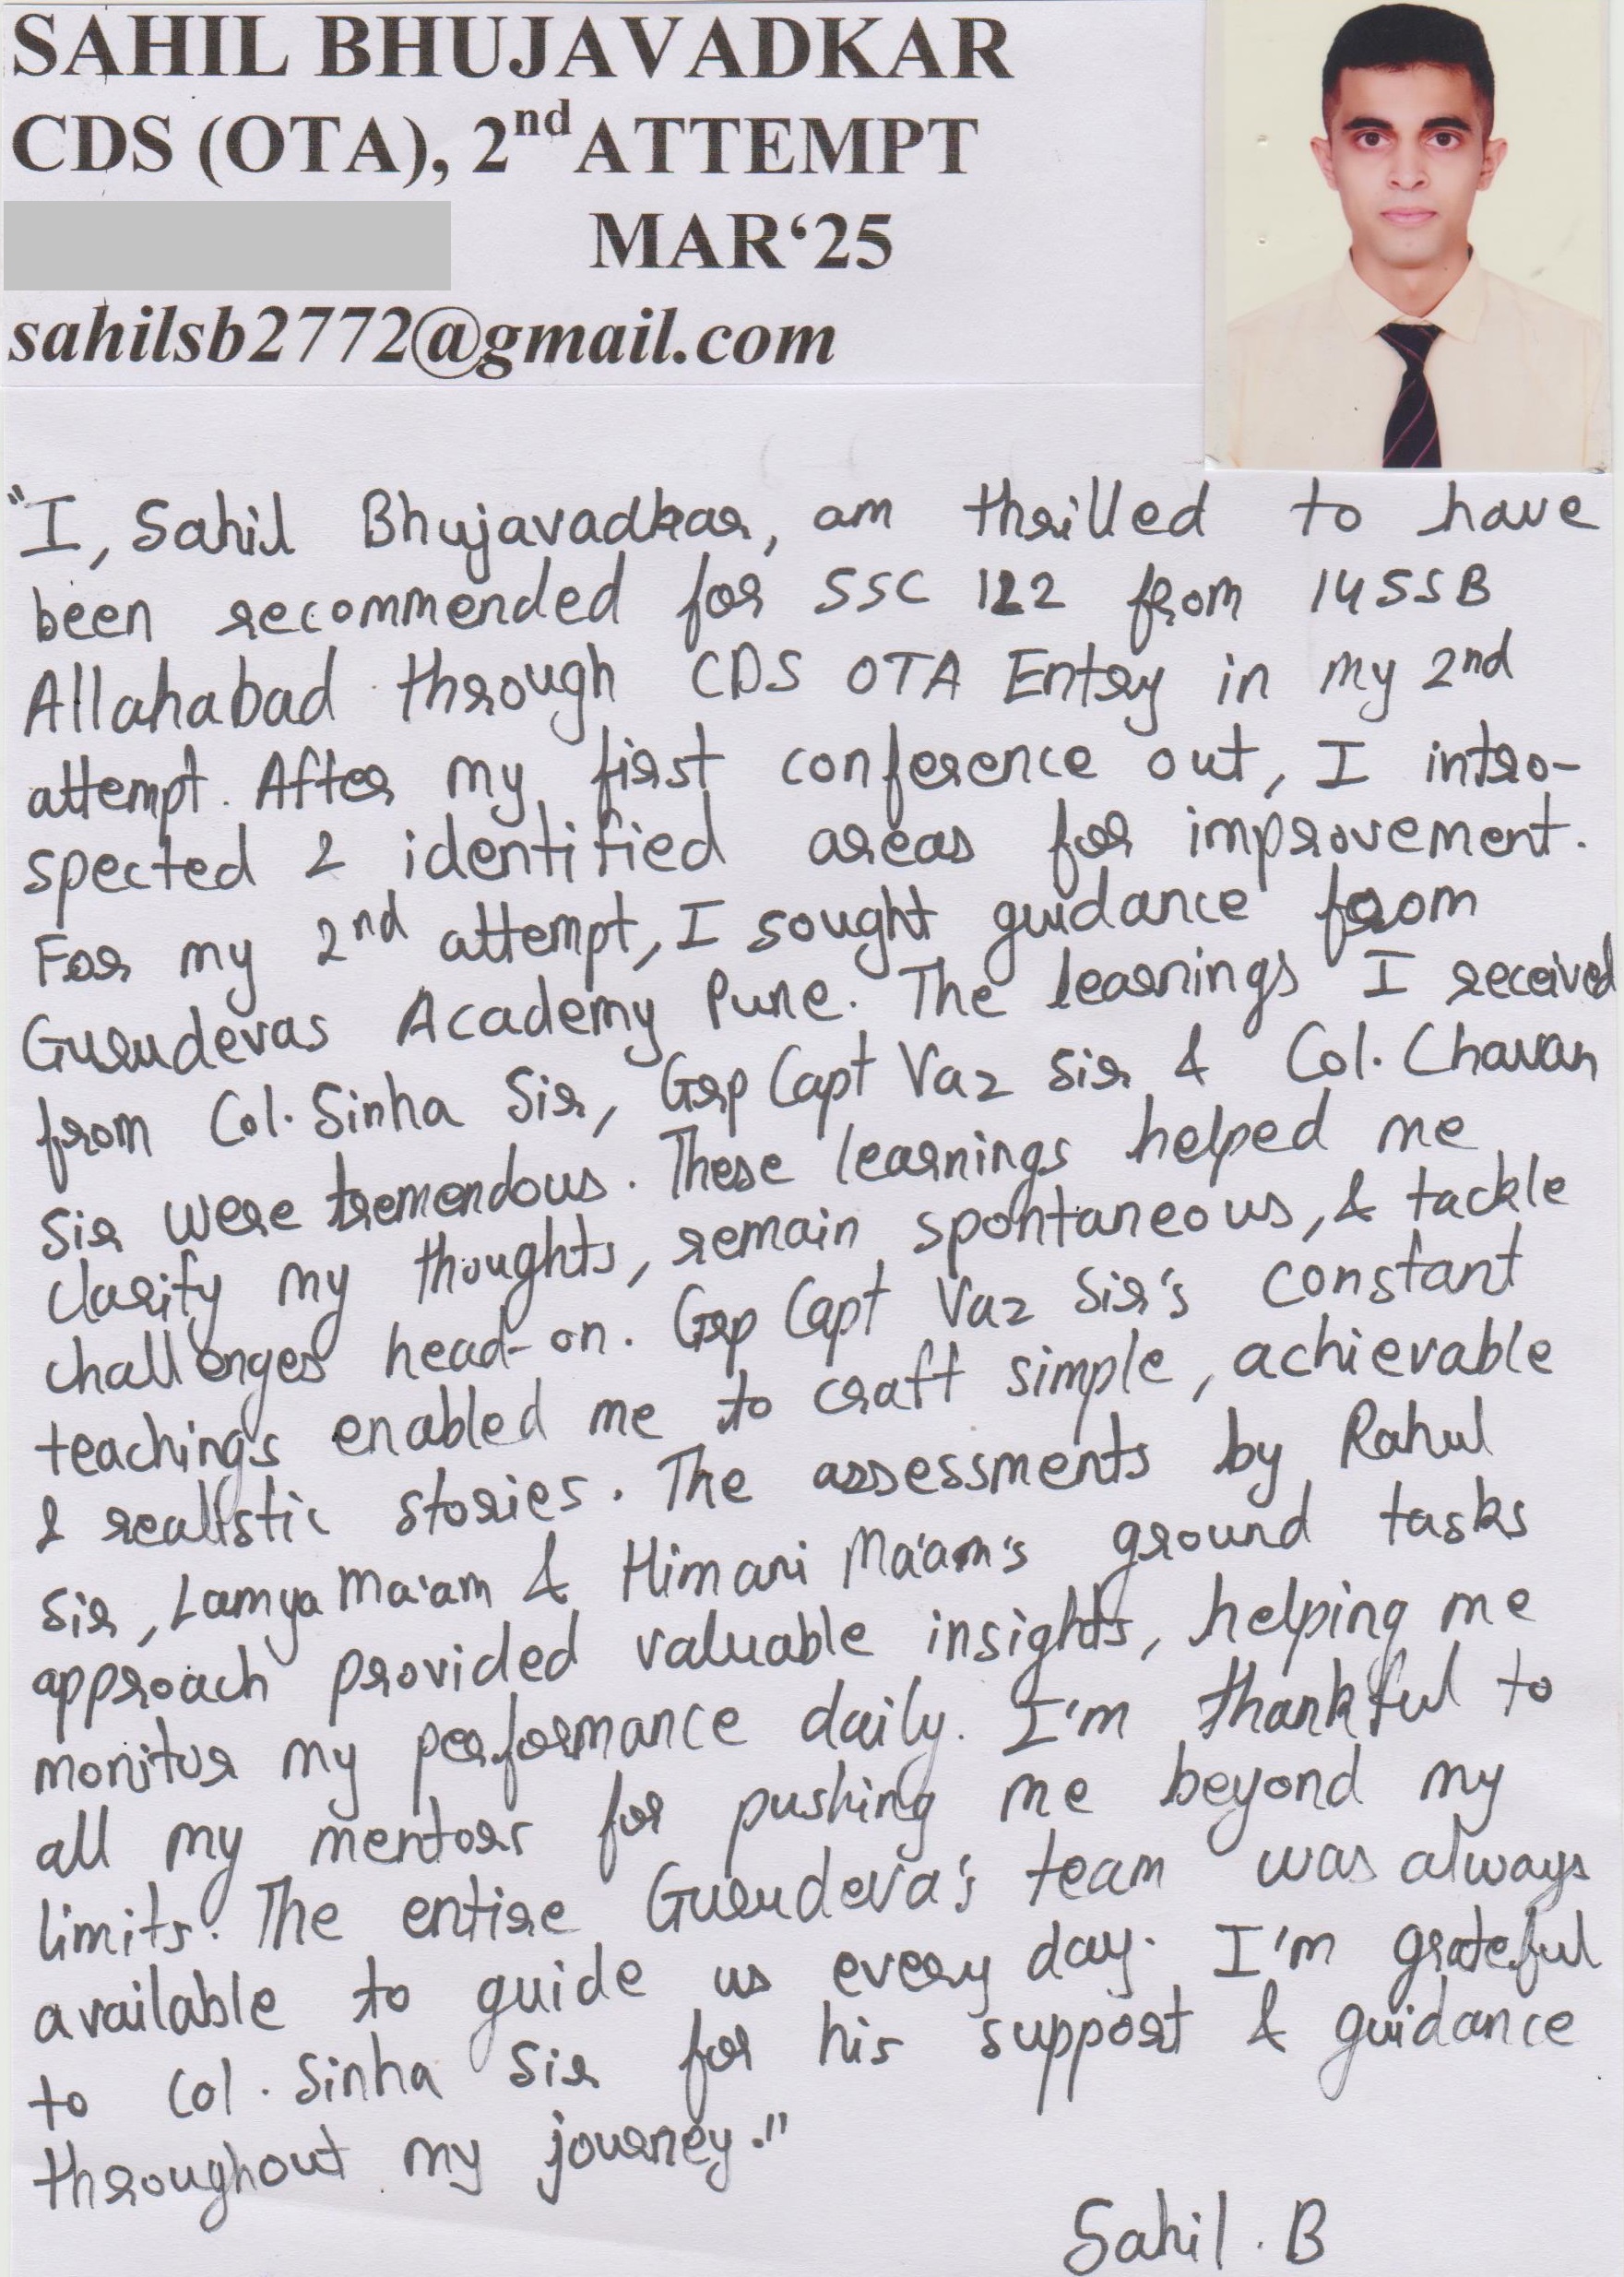 SAHIL BHUJAVADKAR
CDS (OTA), 2nd ATTEMPT
MAR‘25
sahilsb2772@gmail.com
"I, Sahil Bhujavadkar, am thrilled to have
been recommended for SSC 122 from 14 SSB
Allahabad through CDS OTA Entry in my 2nd
attempt. After my first conference out, I intro-
spected & identified areas for improvement.
For my 2nd attempt, I sought guidance from
Gurudevas Academy Pune. The learnings I received
from Col. Sinha Sir, Grp Capt Vaz Sir & Col. Chavan
Sir were tremendous. These learnings helped me
clarify my thoughts, remain spontaneous, & tackle
challenges head-on. Grp Capt Vaz Sir's constant
teachings enabled me to craft simple, achievable
& realistic stories. The assessments by Rahul
Sir, Lamya Ma'am & Himani Ma'am's ground tasks
approach provided valuable insights, helping me
monitor my performance daily. I'm thankful to
all my mentors for pushing me beyond my
limits. The entire Gurudeva's team was always
available to guide us every day. I'm grateful
to Col. Sinha Sir for his support & guidance
throughout my journey."
Sahil. B